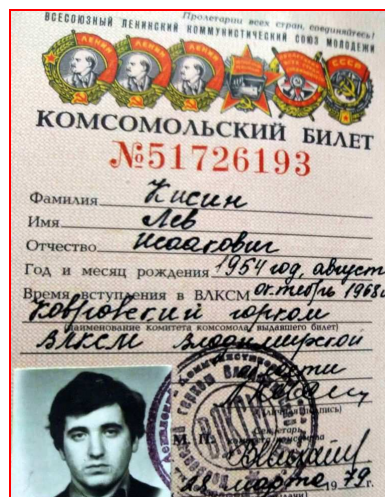 Пролетарии всех стран, соединяйтесь!
ВСЕСОЮЗНЫЙ ЛЕНИНСКИЙ КОММУНИСТИЧЕСКИЙ СОЮЗ МОЛОДЕЖИ
КОМСОМОЛЬСКИЙ БИЛЕТ
№51726193
Фамилия Кисин
Имя Лев
Отчество Исаакович
Год и месяц рождения 1954 год, август
Время вступления в ВЛКСМ октябрь 1968г
Ковровский горком
(наименование комитета комсомола, выдавшего билет)
ВЛКСМ Владимирской
области
(личная подпись)
М. П. Секретарь
комитета комсомола
28 марта 1979 г.